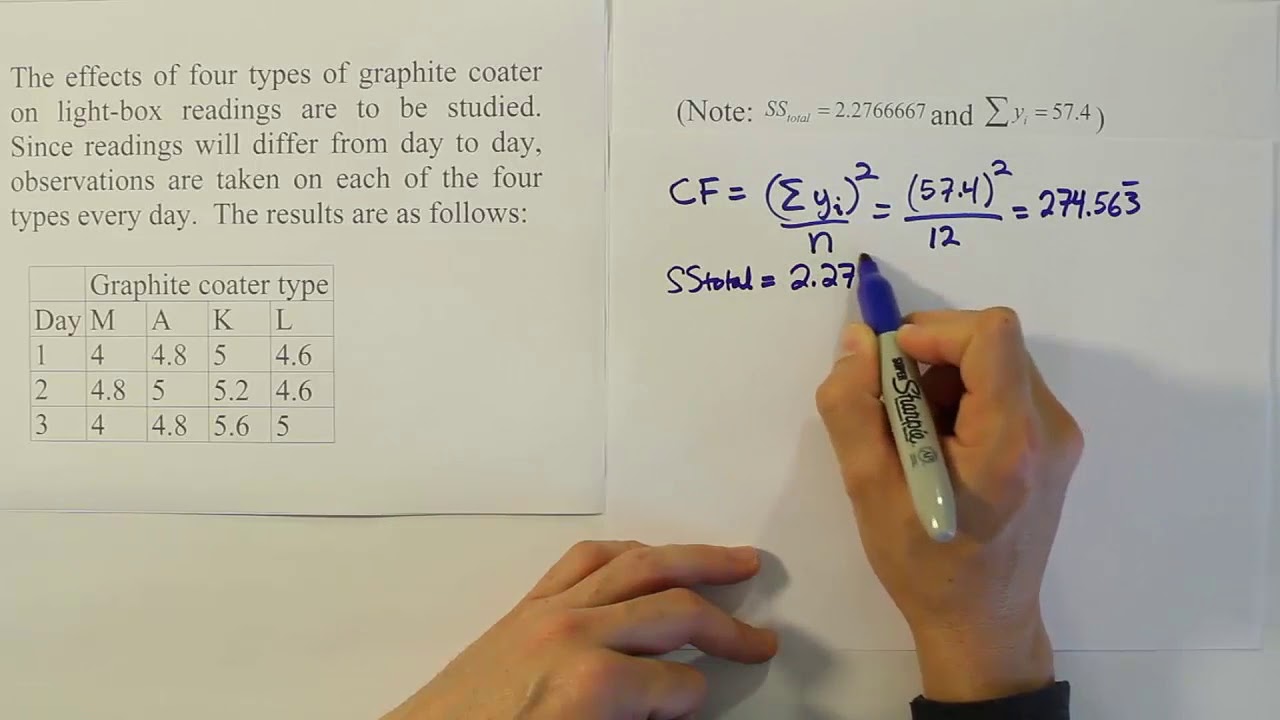 The effects of four types of graphite coater
on light-box readings are to be studied.
Since readings will differ from day to day,
observations are taken on each of the four
types every day. The results are as follows:
Graphite coater type
Day M A K L
1 4 4.8 5 4.6
2 4.8 5 5.2 4.6
3 4 4.8 5.6 5
(Note: SS_total = 2.2766667 and ∑y_i = 57.4)
CF = (Σy_i)²/n = (57.4)²/12 = 274.563̅
SStotal = 2.27
SUPER Sharpie